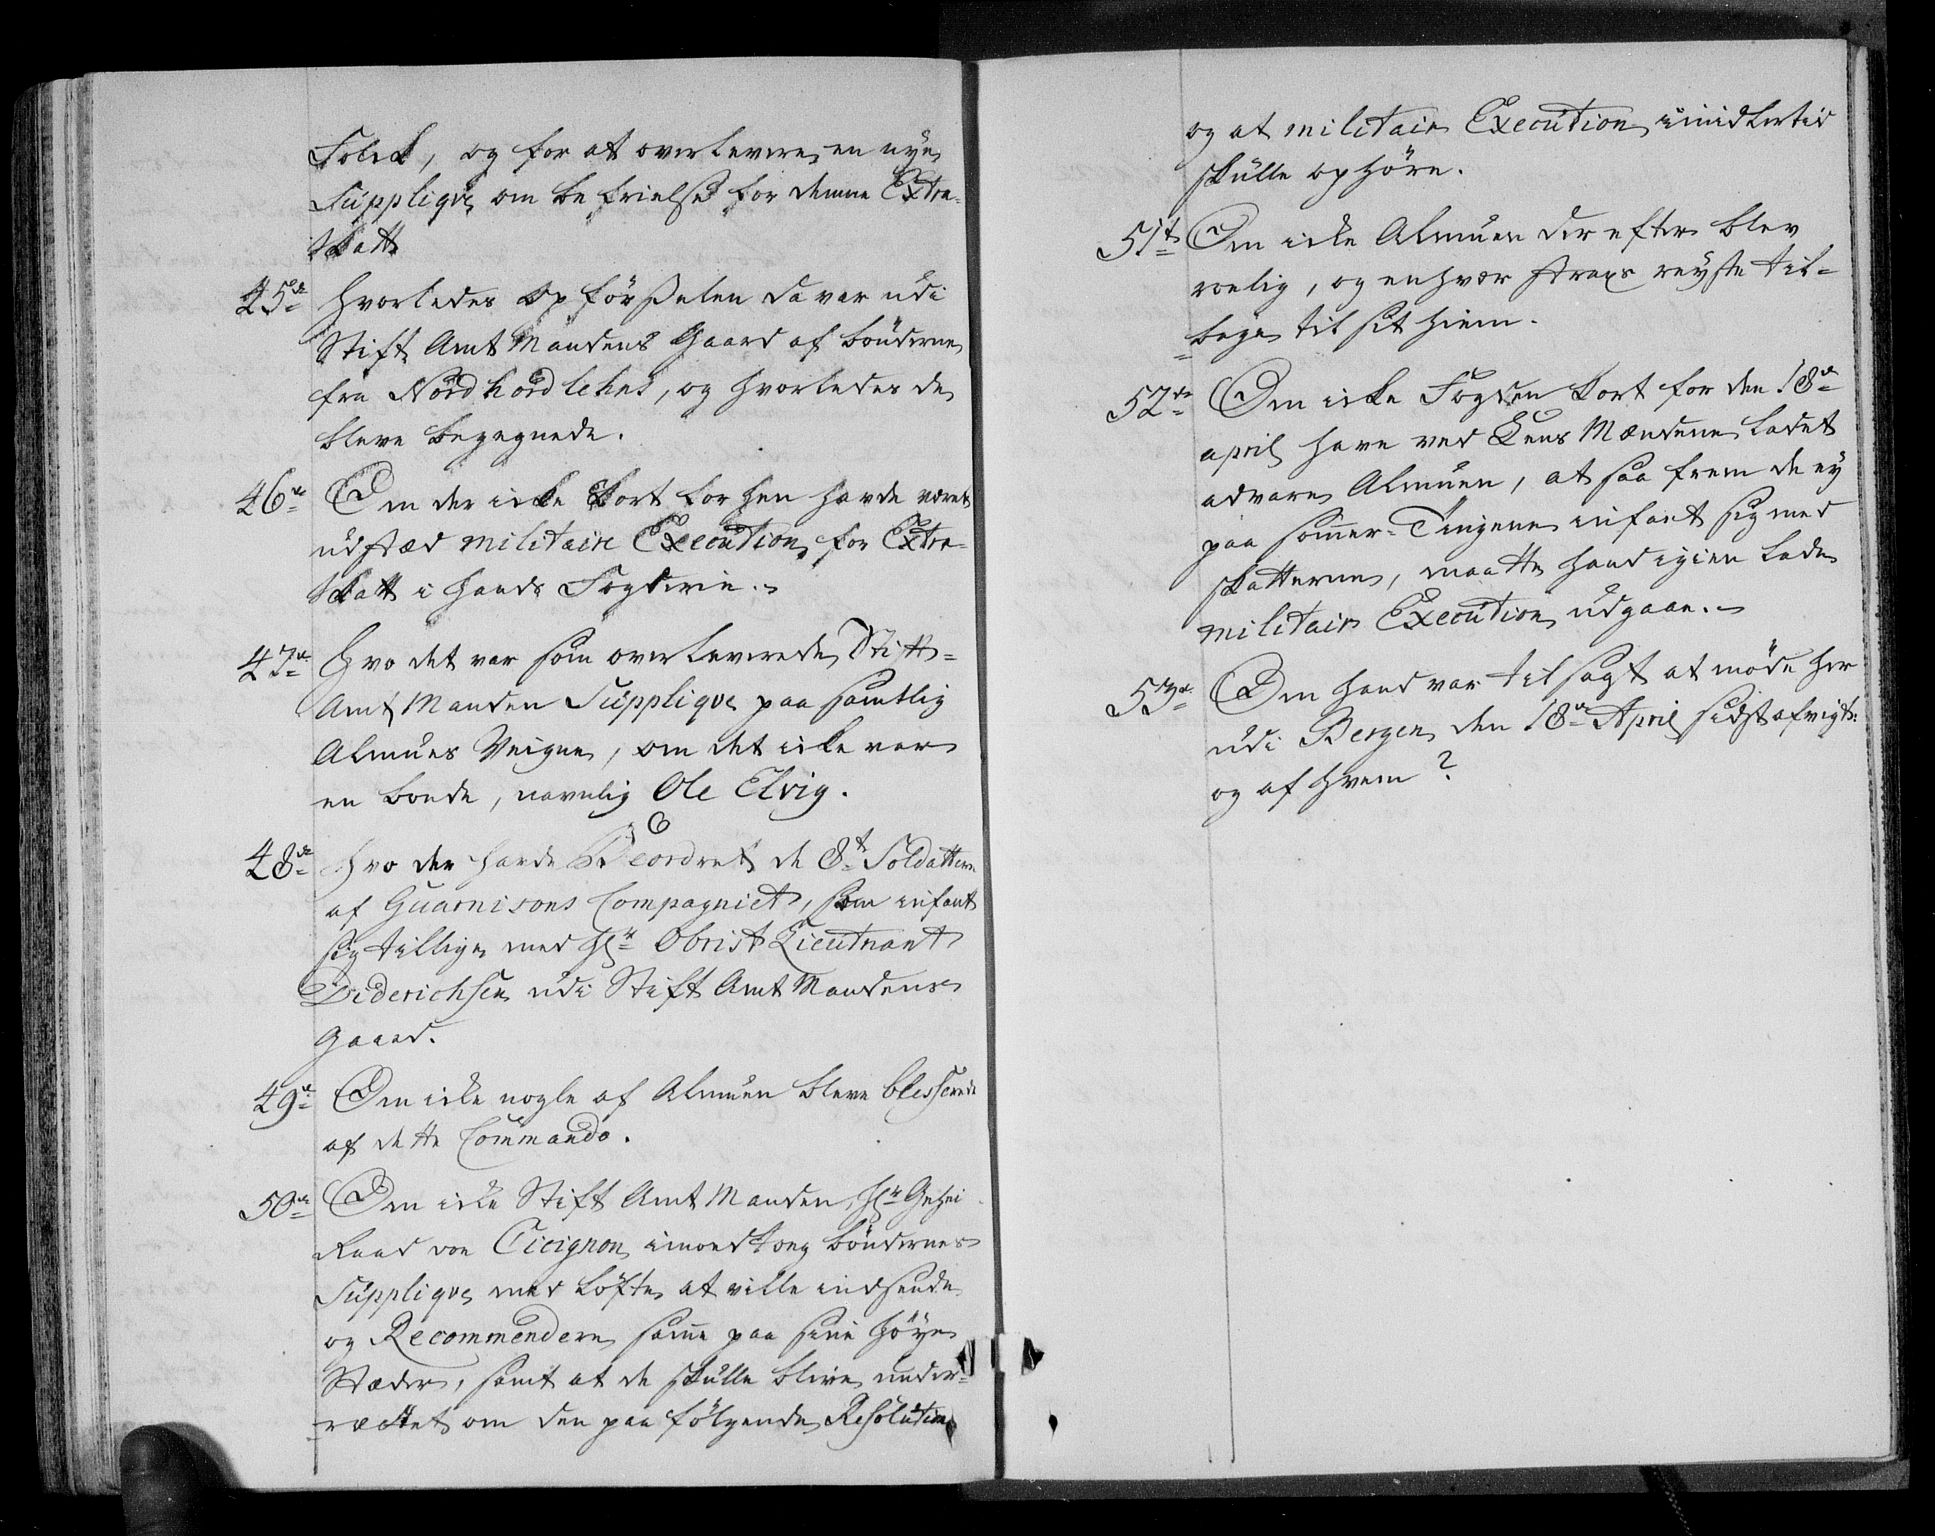 Folck, og for at overlevere en nye
Supplique om befrielse for denne Extra-
skatt
45de hvorledes opförßelen da var udi
Stift Amt Mandens Gaard af bönderne
fra Nordhordlehns, og hvorledes de
bleve begegnede.
46de Om der icke kort forhen havde været
udstæd militaire Execution for Extra-
skatt i hands Fogderie.
47de Hvo det var som overleverede Stift-
Amt Manden Supplique paa samtlig
Almues Veigne, om det icke var
en bonde, navnlig Ole Elvig.
48de hvo der havde Beordret de 8te Soldatter
af Guarnisons Compagniet, som infant
sig tillige med Hr Obrist Lieutnant
Diderichsen udi Stift Amt Mandens
Gaard.
49de Om icke nogle af Almuen bleve blesserede
af dette Commando.
50de Om icke Stift Amt Manden, Hr Gehei
Raad von Cicignon imodtog böndernes
Supplique med Löfte at ville indsende
og Recommendere samme paa sine höye
Stæder, samt at de skulle blive under-
rættet om den paa fölgende Resolution
og at militair Execution imidlertid
skulle ophöre.
51te Om icke Almuen der efter blev
roelig, og enhver strax reyste til-
bage til sit hiem.
52de Om icke Fogden kort for den 18de
april have ved Lens Mændene ladet
advare Almuen, at saa frem de ey
paa Sommer-Tingene infant sig med
skatterne, maatte hand igien lade
militair Execution udgaae.
53de Om hand var tilsagt at möde her
udi Bergen den 18de April sidstafvigt:
og af hvem?